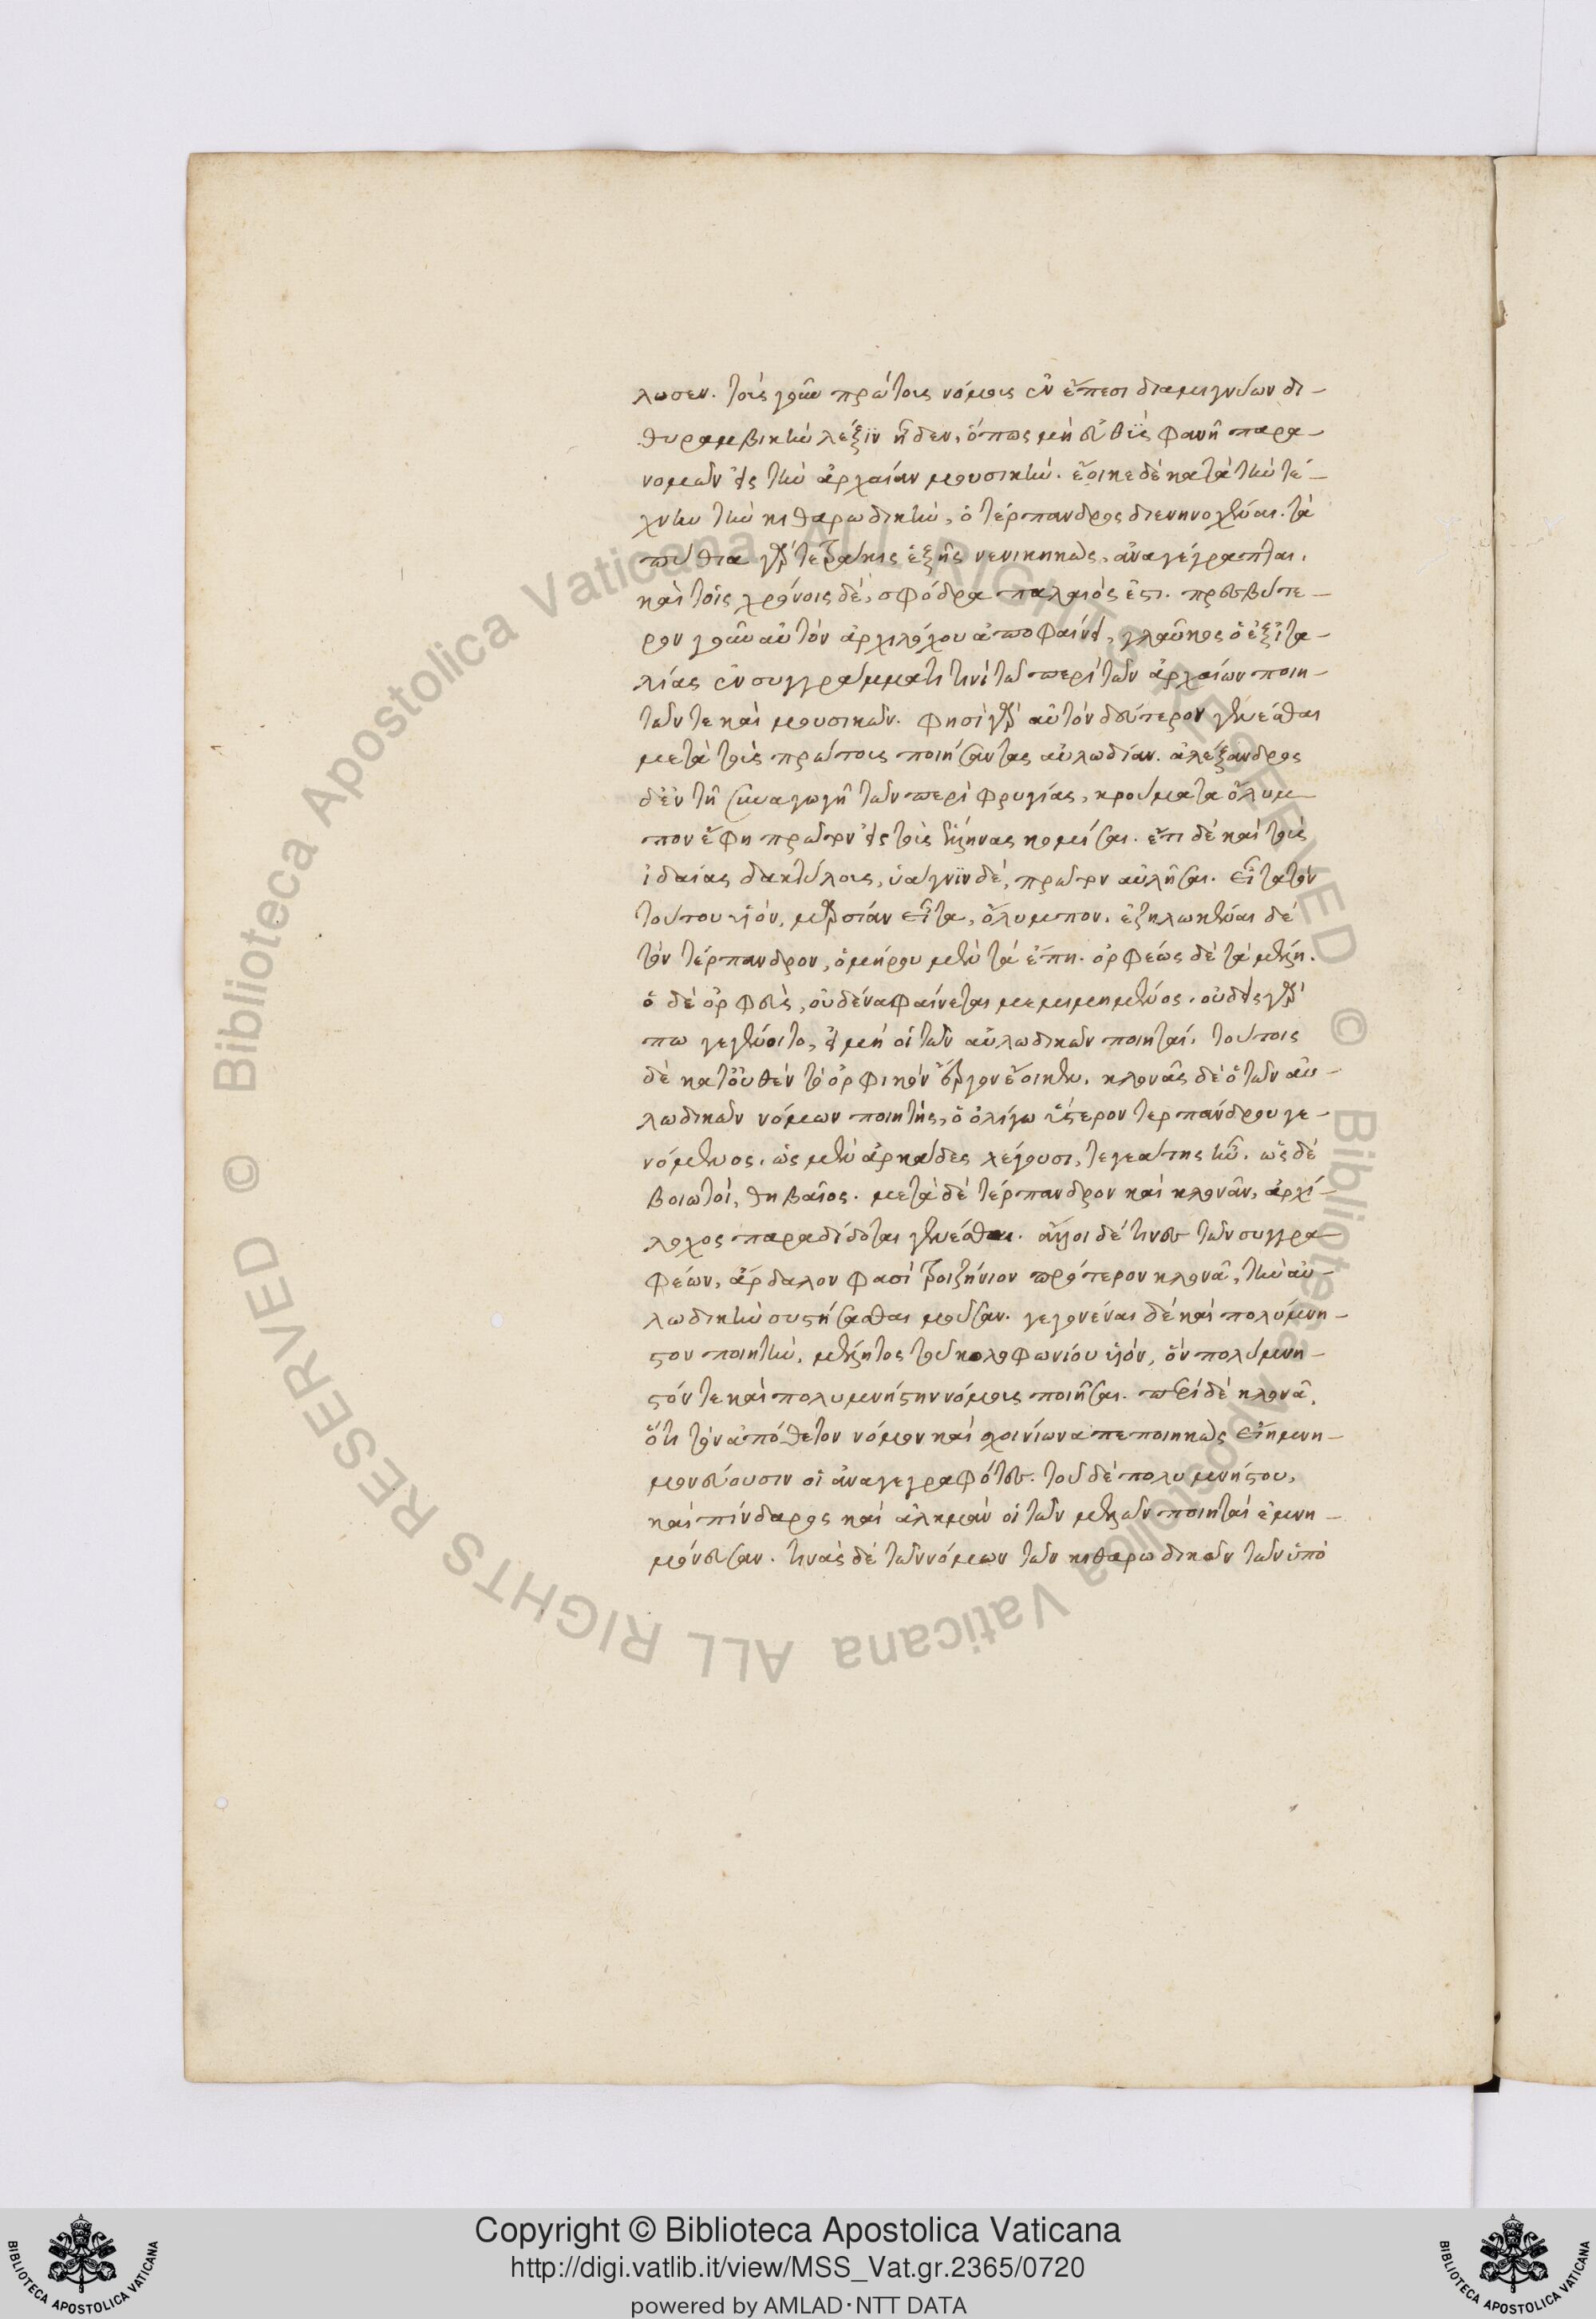 λωσεν. τοὺς γοῦν πρώτους νόμους ἐν ἔπεσι διαμιγνύων δι-
θυραμβικὴν λέξιν ᾖδεν, ὅπως μὴ εὐθὺς φανῇ παρα-
νομῶν εἰς τὴν ἀρχαίαν μουσικήν. ἔοικε δὲ κατὰ τὴν τέ-
χνην τὴν κιθαρωδικὴν, ὁ τέρπανδρος διενηνοχέναι. τὰ
πύθια γὰρ τετράκις ἑξῆς νενικηκὼς, ἀναγέγραπται.
καὶ τοῖς χρόνοις δὲ, σφόδρα παλαιός ἐστι. πρεσβύτε-
ρον γοῦν αὐτὸν ἀρχιλόχου ἀποφαίνει, γλαῦκος ὁ ἐξ ἰτα-
λίας ἐν συγγράμματι τινὶ τῶ περὶ τῶν ἀρχαίων ποιη-
τῶν τε καὶ μουσικῶν. φησὶ γὰρ αὐτὸν δεύτερον γενέσθαι
μετὰ τοὺς πρώτους ποιήσαντας αὐλωδίαν. ἀλέξανδρος
δ' ἐν τῇ συναγωγῇ τῶν περὶ φρυγίας, κρούματα ὄλυμ
πον ἔφη πρῶτον εἰς τοὺς ἕλληνας κομίσαι. ἔτι δὲ καὶ τοὺς
ἰδαίας δακτύλους, ὑάγνιν δὲ, πρῶτον αὐλῆσαι. εἶτα τὸν
τούτου υἱόν, μαρσύαν εἶτα, ὄλυμπον. ἐζηλωκέναι δὲ
τὸν τέρπανδρον, ὁμήρου μὲν τὰ ἔπη. ὀρφέως δὲ τὰ μέλη.
ὁ δὲ ὀρφεὺς, οὐδένα φαίνεται μεμιμημένος. οὐδεὶς γὰρ
πω γεγένοιτο, εἰ μὴ οἱ τῶν αὐλωδικῶν ποιηταί. τούτοις
δὲ κατ' οὐθὲν τὸ ὀρφικὸν ἔργον ἔοικεν. κλονᾶς δὲ ὁ τῶν αὐ-
λωδικῶν νόμων ποιητὴς, ὁ ὀλίγω ὕστερον τερπάνδρου γε-
νόμενος. ὡς μὲν ἀρκάδες λέγουσι, τεγεάτης ἦν. ὡς δὲ
βοιωτοὶ, θηβαῖος. μετὰ δὲ τέρπανδρον καὶ κλονᾶν, ἀρχί-
λοχος παραδίδοται γενέσθαι. ἄλλοι δέ τινες τῶν συγγρα
φέων, ἄρδαλον φασὶ τροιζήνιον πρότερον κλονᾶ, τὴν αὐ-
λωδικὴν συστήσασθαι μοῦσαν. γεγονέναι δὲ καὶ πολύμνη-
στον ποιητὴν, μέλητος τοῦ κολοφωνίου υἱόν, ὃν πολύμνη-
στόν τε καὶ πολυμνήστην νόμους ποιῆσαι. περὶ δὲ κλονᾶ,
ὅτι τὸν ἀπόθετον νόμον καὶ σχοινίωνα πεποιηκὼς εἴη μνη-
μονεύουσιν οἱ ἀναγεγραφότες. τοῦ δὲ πολυμνήστου,
καὶ πίνδαρος καὶ ἀλκμὰν οἱ τῶν μελῶν ποιηταὶ ἐμνη-
μόνευσαν. τινὰς δὲ τῶν νόμων τῶν κιθαρωδικῶν τῶν ὑπὸ
© Biblioteca Apostolica Vaticana ALL RIGHTS RESERVED
© Biblioteca Apostolica Vaticana ALL RIGHTS RESERVED
Copyright © Biblioteca Apostolica Vaticana
http://digi.vatlib.it/view/MSS_Vat.gr.2365/0720
powered by AMLAD·NTT DATA
BIBLIOTECA APOSTOLICA VATICANA
BIBLIOTECA APOSTOLICA VATICANA